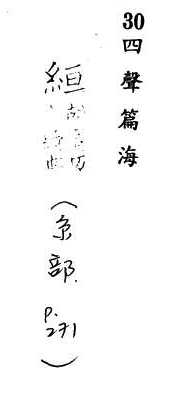 30四聲篇海
絙
(糸部.
p.
271)